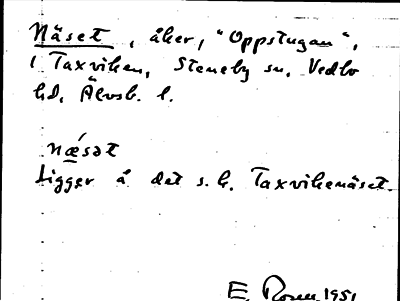 Näset, åker, "Oppstugan",
i Taxviken, Steneby sn, Vedbo
hd, Älvsb. l.
næ´sət
Ligger å det s.k. Taxvikenäset.
E. Rosen 1951